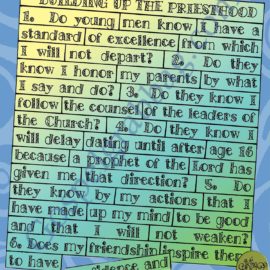 BUILDING UP THE PRIESTHOOD
1. Do young men know I have a
standard of excellence from which
I will not depart? 2. Do they
know I honor my parents by what
I say and do? 3. Do they know I
follow the counsel of the leaders of
the Church? 4. Do they know I
will delay dating until after age 16
because a prophet of the Lord has
given me that direction? 5. Do
they know by my actions that I
have made up my mind to be good
and that I will not weaken?
6. Does my friendship inspire them
to have confidence and